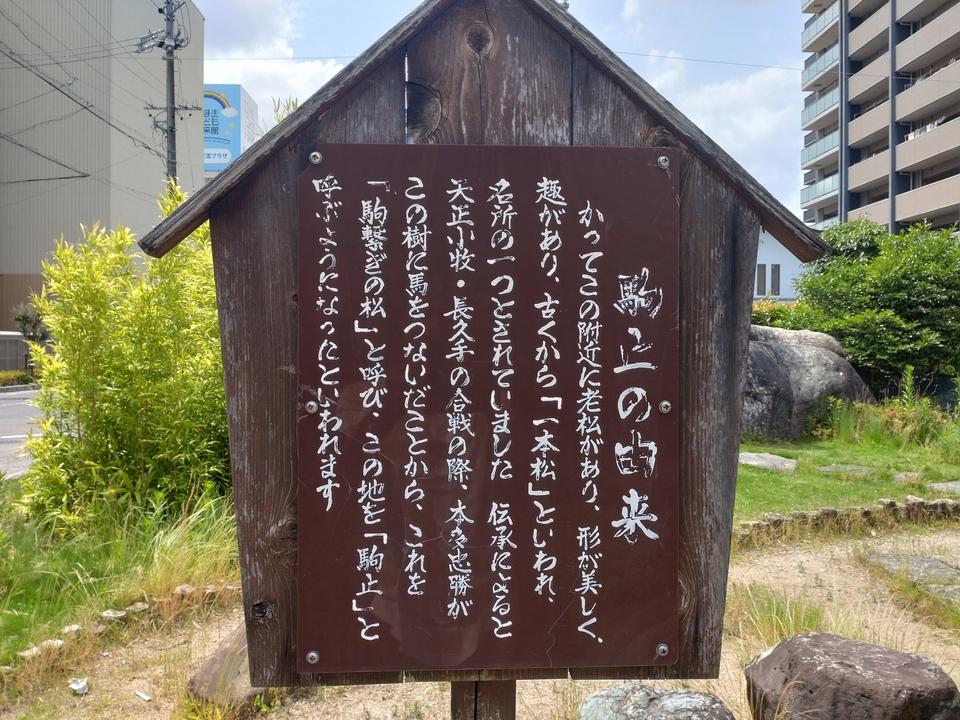 駒止の由来
かってこの附近に老松があり、形が美しく、
趣があり、古くから「一本松」といわれ、
名所の一つとされていました 伝承によると
天正小牧・長久手の合戦の際、本多忠勝が
この樹に馬をつないだことから、これを
「駒繋ぎの松」と呼び、この地を「駒止」と
呼ぶようになったといわれます
プラザ